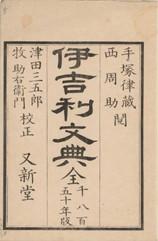 手塚律蔵閲
西周助
伊吉利文典 全
千八百
五十年版
津田三五郎
牧助右衛門 校正
又新堂